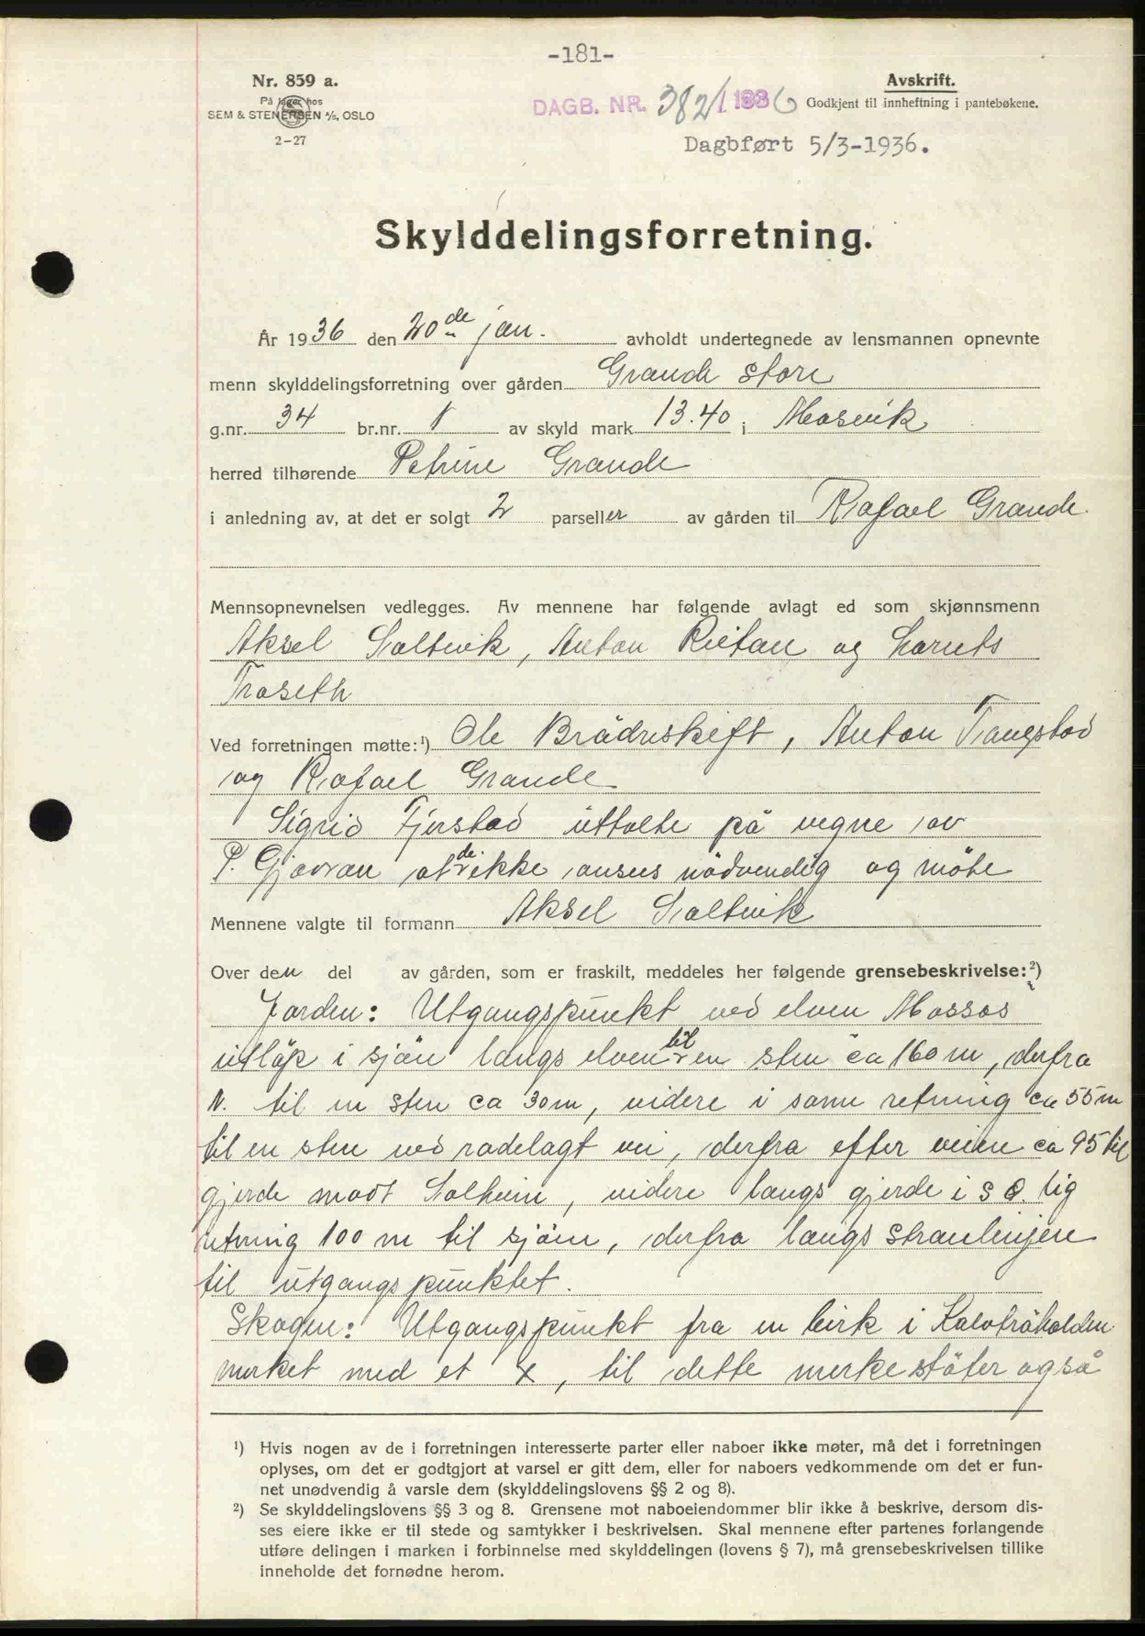 -181-
Nr. 859 a.
På lager hos
SEM & STENERSEN A/S, OSLO
2-27
DAGB. NR. 382/1936
Avskrift.
Godkjent til innheftning i pantebøkene.
Dagbført 5/3-1936.
Skylddelingsforretning.
År 1936 den 20de jan. avholdt undertegnede av lensmannen opnevnte
menn skylddelingsforretning over gården Grande store
g.nr. 34 br.nr. 1 av skyld mark 13.40 i Mosvik
herred tilhørende Petrine Grande
i anledning av, at det er solgt 2 parseller av gården til Rafael Grande.
Mennsopnevnelsen vedlegges. Av mennene har følgende avlagt ed som skjønnsmenn
Aksel Saltvik, Anton Reitan og Lornts
Traseth
Ved forretningen møtte:¹) Ole Brädreskift, Anton Tangstad
og Rafael Grande
Sigrid Fjerstad uttalte på vegne av
P. Gjævran at de ikke ansees nödvendig og möte
Mennene valgte til formann Aksel Saltvik
Over den del av gården, som er fraskilt, meddeles her følgende grensebeskrivelse:²)
Jorden: Utgangspunkt ved elven Mossas
utläp i sjön langs elven til en sten ca 160 m, derfra
N. til en sten ca 30 m, videre i samme retning ca 55 m
til en sten ved rodelagt vei, derfra efter veien ca 95 til
gjerde modt Solheim, videre langs gjerde i S Ö. lig
retning 100 m til sjöen, derfra langs stranlinjen
til utgangspunktet.
Skogen: Utgangspunkt fra en birk i
merket med et x, til dette merke stöter også
¹) Hvis nogen av de i forretningen interesserte parter eller naboer ikke møter, må det i forretningen
oplyses, om det er godtgjort at varsel er gitt dem, eller for naboers vedkommende om det er fun-
net unødvendig å varsle dem (skylddelingslovens §§ 2 og 8).
²) Se skylddelingslovens §§ 3 og 8. Grensene mot naboeiendommer blir ikke å beskrive, dersom dis-
ses eiere ikke er til stede og samtykker i beskrivelsen. Skal mennene efter partenes forlangende
utføre delingen i marken i forbinnelse med skylddelingen (lovens § 7), må grensebeskrivelsen tillike
inneholde det fornødne herom.